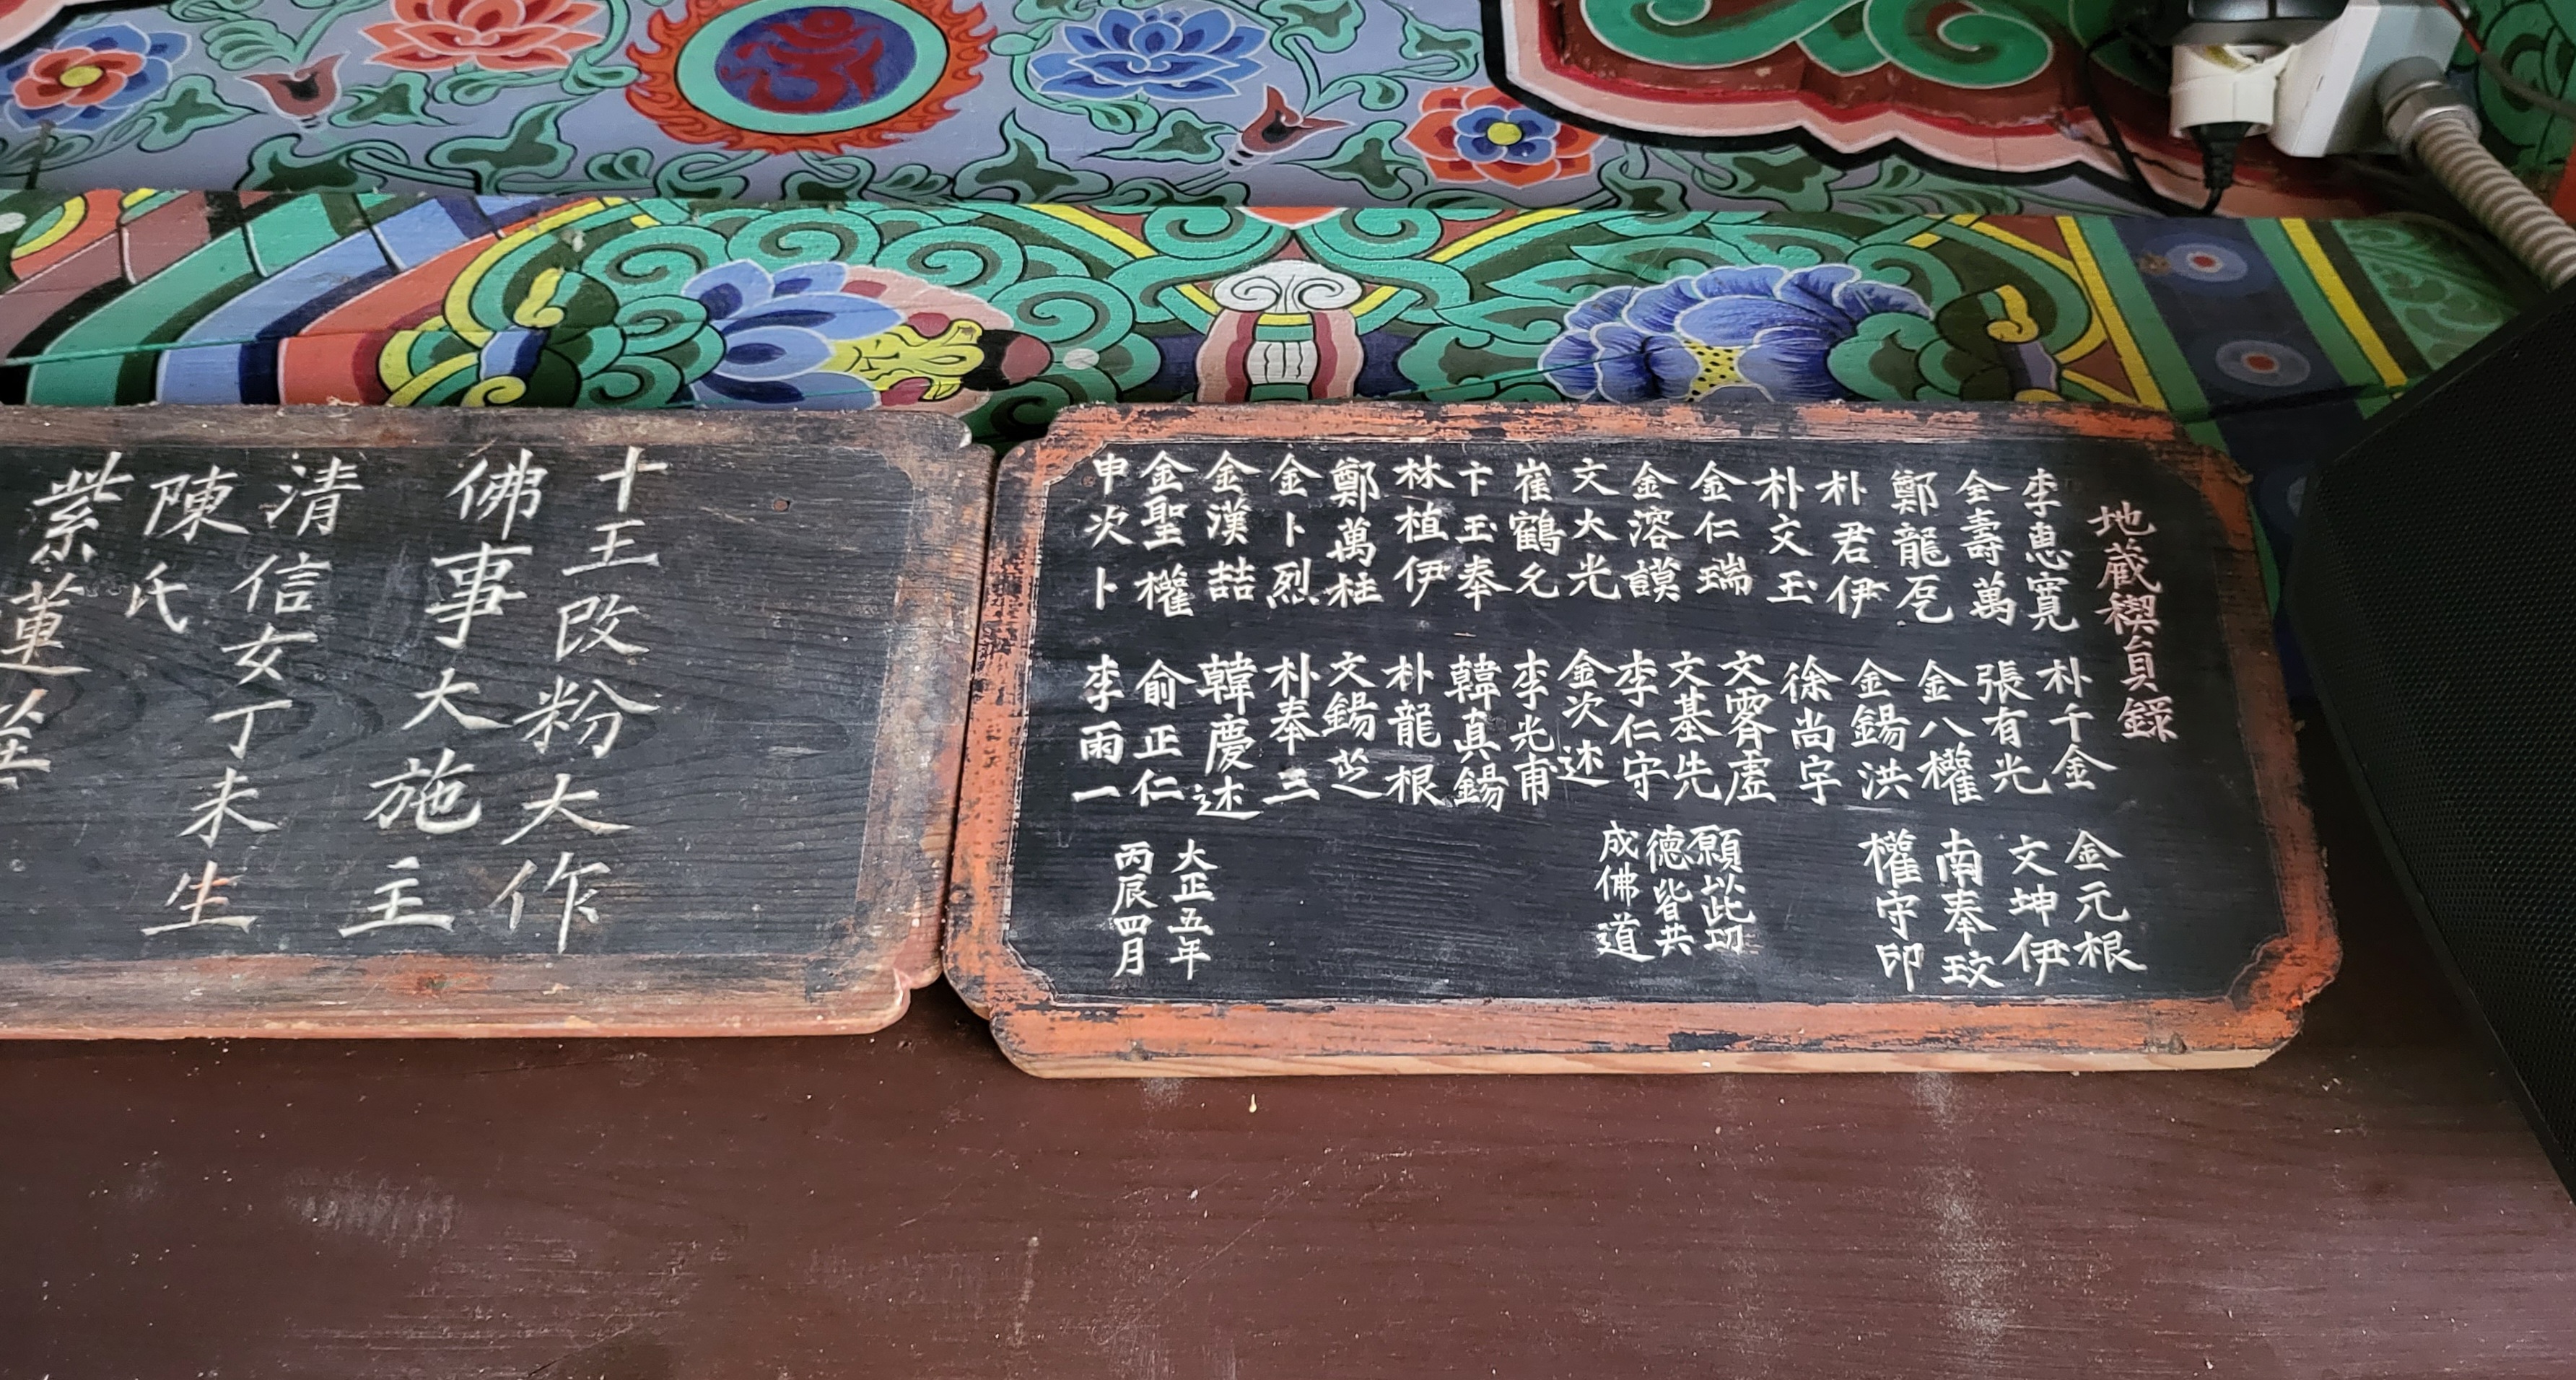 地藏稧員錄
李惠寬
金壽萬
鄭龍乭
朴君伊
朴文玉
金仁瑞
金溶謨
文大光
崔鶴允
卞玉奉
林植伊
鄭萬柱
金卜烈
金漢喆
金聖權
申次卜
朴千金
張有光
金八權
金錫洪
徐尚宇
文霽虛
文基先
李仁守
金次述
李光甫
韓真錫
朴龍根
文錫芝
朴奉三
韓慶述
俞正仁
李雨一
金元根
文坤伊
南奉玟
權守卬
願此功
德皆共
成佛道
大正五年
丙辰四月
十王改粉大作
佛事大施主
清信女丁未生
陳氏
紫蓮